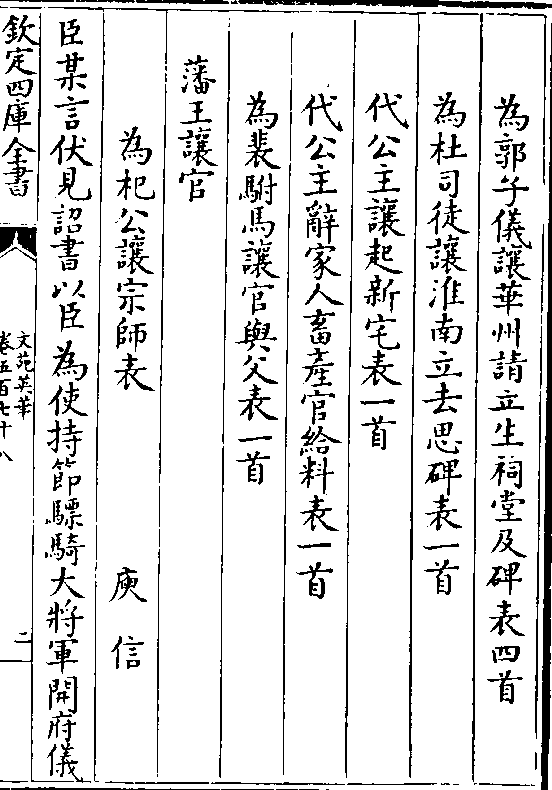 為郭子儀讓華州請立生祠堂及碑表四首
為杜司徒讓淮南立去思碑表一首
代公主讓起新宅表一首
代公主辭家人畜產官給料表一首
為裴駙馬讓官與父表一首
藩王讓官
為杞公讓宗師表 庾信
臣某言伏見詔書以臣為使持節驃騎大將軍開府儀
欽定四庫全書
文苑英華
卷五百七十八
二